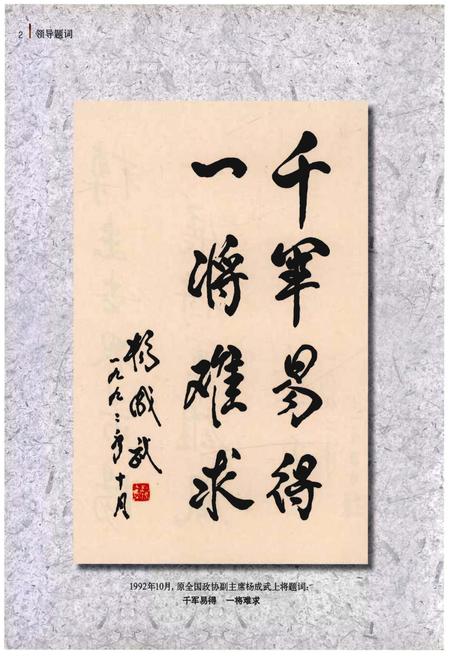 2 领导题词
千军易得
一将难求
杨成武
一九九二年十月
1992年10月，原全国政协副主席杨成武上将题词：
千军易得 一将难求